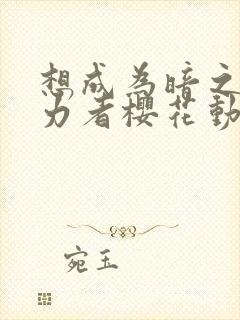 想成为暗之
力者樱花動
宛玉